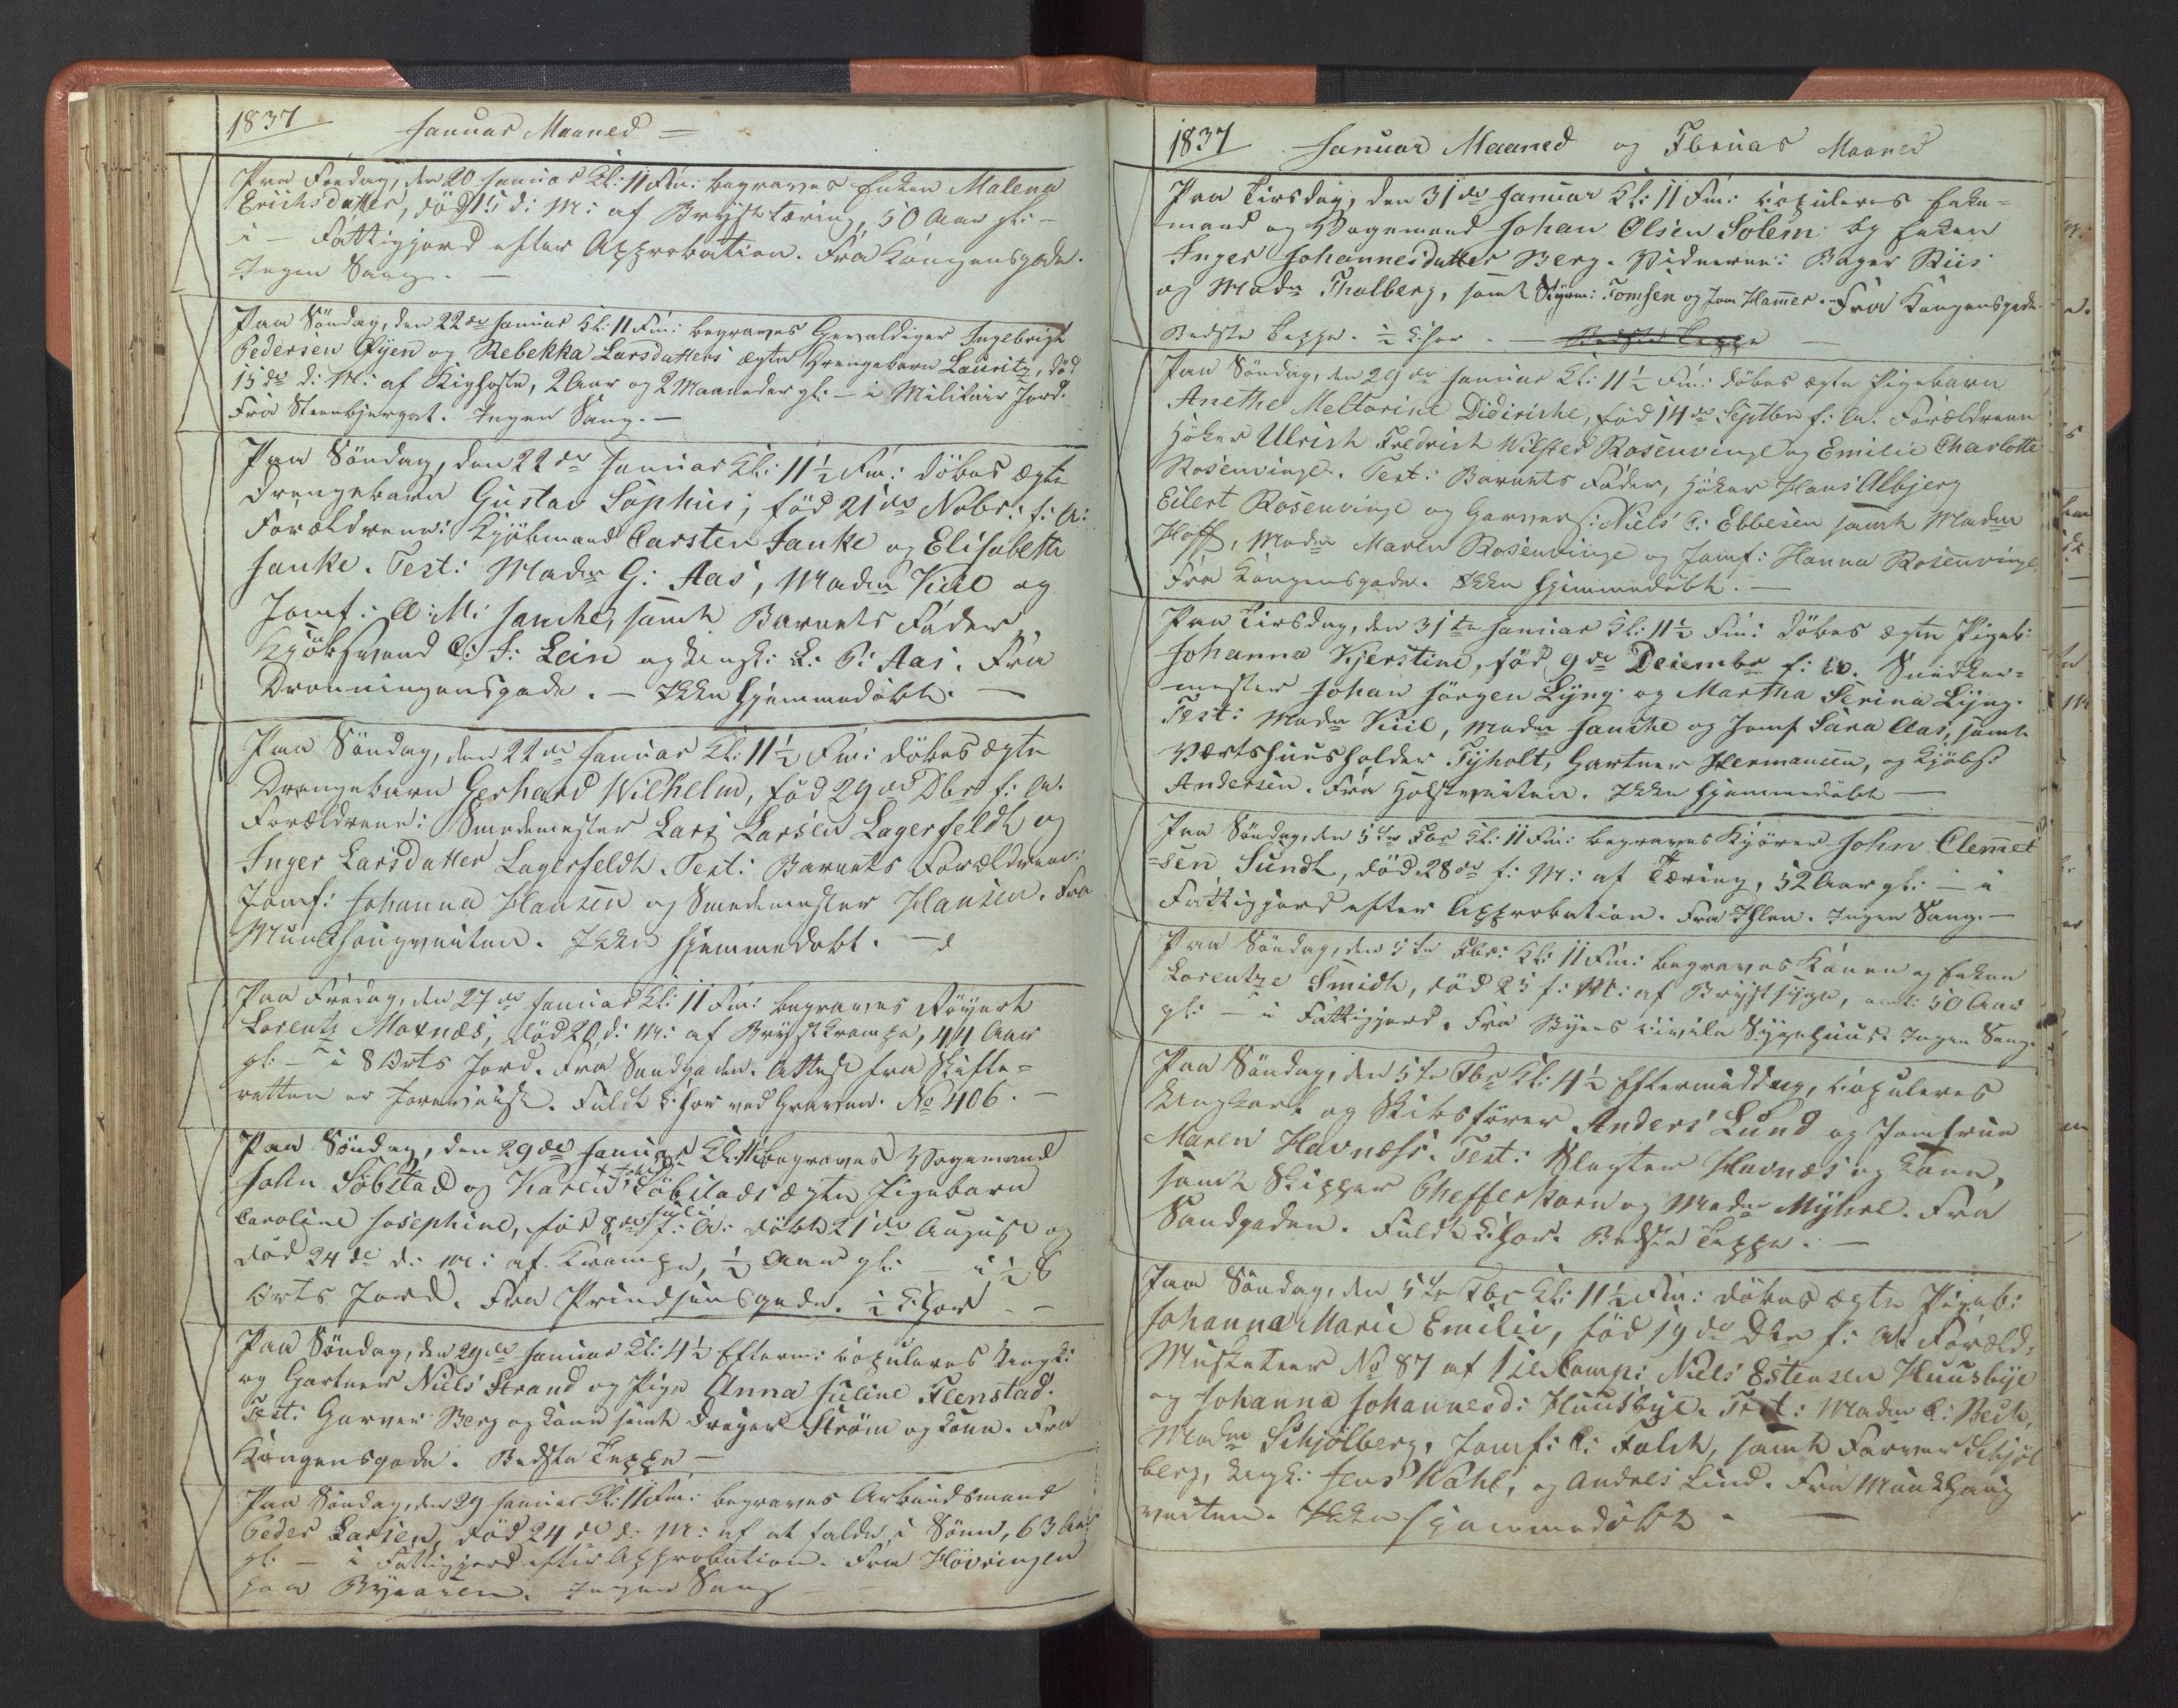 1837 Januar Maaned
Paa Fredag, den 20 Januar Kl: 11 Fm: begraves Enken Malena
Erichsdatter, død 15 d: M: af Brysttæring, 50 Aar gl: –
i – Fattigjord efter Approbation. Fra Kongensgade.
Ingen Sang. –
Paa Søndag, den 22de Januar Kl: 11 Fm: begraves Gevaldiger Ingebrigt
Pedersen Øyen og Rebekka Larsdatters ægte Drengebarn Lauritz, død
15de d: M: af Kighoste, 2 Aar og 2 Maaneder gl: – i Militair Jord.
Fra Steenbjerget. Ingen Sang. –
Paa Søndag, den 22de Januar Kl: 11½ Fm: døbes ægte
Drengebarn Gustav Sophus, fød 21de Nobr: f: A:
Forældrene: Kjøbmand Carsten Janke og Elisabeth
Janke. Test: Madm G: Aas, Madm Kiil og
Jomf: A: M: Janche, samt Barnets Fader,
Kjøbmand C: F: Lein og Ungk: L: P: Aas. Fra
Dronningensgade. – Ikke hjemmedøbt. –
Paa Søndag, den 22de Januar Kl: 11½ Fm: døbes ægte
Drengebarn Gerhard Wilhelm, fød 29de Dbr f: A.
Forældrene: Smedemester Lars Larsen Lagerfeldt og
Inger Larsdatter Lagerfeldt. Test: Barnets Forældrene:
Jomf: Johanna Hansen og Smedemester Hansen. Fra
Munkhaugveiten. Ikke hjemmedøbt. –
Paa Fredag, den 27de Januar Kl: 11 Fm: begraves
Lorentz Moxnæs, død 20 d: M: af Brystkrampe, 44 Aar
gl: – i 8 Orts Jord. Fra Sandgaden. Attest fra Skifte-
retten er foreviist. Fuldt Chor ved Graven. No 406. –
Paa Søndag, den 29de Januar Kl: 11 begraves Vognmand
John Søbstad og Karen Søbstads ægte Pigebarn
Caroline Josephine, fød 8de Juli f: A: døbt 21de August og
død 24de d: M: af Krampe, ½ Aar gl: – i ½ 8
Orts Jord. Fra Prindsensgade. ½ Chor – –
Paa Søndag, den 29de Januar Kl: 4½ Efterm: copuleres Ungk:
og Gartner Niels Strand og Pige Anna Juline Flenstad.
Test: Garver Berg og Kone samt Dreyer Strøm og Kone. Fra
Kongensgade. Bedste Teppe –
Paa Søndag, den 29 Januar Kl: 11 Fm: begraves Arbeidsmand
Peder Larsen, død 24de d: M: af at falde i Søen, 63 Aar
gl: – i Fattigjord efter Approbation. Fra Høvringen
paa Byaasen. Ingen Sang
1837 Januar Maaned og Februar Maaned
Paa Tirsdag, den 31de Januar Kl: 11 Fm: copuleres Enke-
mand og Vognmand Johan Olsen Solem og Enken
Inger Johannesdatter Berg. Vidnerne: Bager Riis
og Madm Thalberg, samt Tomsen og Hammer. Fra Kongensgade
Bedste Teppe. ½ Chor. – Bedste Teppe –
Paa Søndag, den 29de Januar Kl: 11½ Fm: døbes ægte Pigebarn
Anethe Meltorine Didiriche, fød 14de Septbr f: A. Forældrene
Høker Ulrich Fredrich Wilster Rosenvinge og Emilie Charlotte
Rosenvinge. Test: Barnets Fader, Høker Hans Albjerg
Eilert Rosenvinge og Garvers: Niels C: Ebbesen samt Madm
Hoff, Madm Maren Rosenvinge og Jomf: Hanna Rosenvinge,
Fra Kongensgade. Ikke hjemmedøbt. –
Paa Tirsdag, den 31te Januar Kl: 11½ Fm: døbes ægte Pigeb:
Johanna Kjerstine, fød 9de Decembr f: A. Snedker-
mester Johan Jørgen Lyng og Martha Serina Lyng.
Test: Madm Kiil, Madm Janche og Jomf Sara Aas, samt
Værtshuusholder Tyholt, Gartner Hermansen, og Kjøbs:
Andersen. Fra Holstveiten. Ikke hjemmedøbt –
Paa Søndag, den 5te Fbr Kl: 11 Fm: begraves Kjører John Clemet
=sen Sundt, død 28de f: M: af Tæring, 52 Aar gl: – i
Fattigjord efter Approbation. Fra Ihlen. Ingen Sang. –
Paa Søndag, den 5te Fbr: Kl: 11 Fm: begraves Konen og Enken
Lorentze Smidt, død 25 f: M: af Brystsyge, omt: 50 Aar
gl: – i Fattigjord. Fra Byens civile Sygehuus. Ingen Sang.
Paa Søndag, den 5te Fbr Kl: 4½ Eftermiddag, copuleres
Ungkarl og Skibsfører Anders Lund og Jomfrue
Maren Havnæss. Test: Slagter Havnæs og Kone,
samt Skipper Gheffer og Madm Myhre. Fra
Sandgaden. Fuldt Chor. Bedste Teppe. –
Paa Søndag, den 5te Fbr Kl: 11½ Fm: døbes ægte Pigeb:
Johanna Marie Emilie, fød 19de Dbr f: A: Foræld:
Musketeer No 87 af 1ste Comp: Niels Estensen Huusbye
og Johanna Johannesd: Huusbye. Test: Madm C: Bech,
Madm Schjølberg, Jomf: C: Falch, samt Farver Schjøl
berg, Ungk: Jens Wahl, og Andres Lind. Fra Munkhaug
veiten. Ikke hjemmedøbt. –